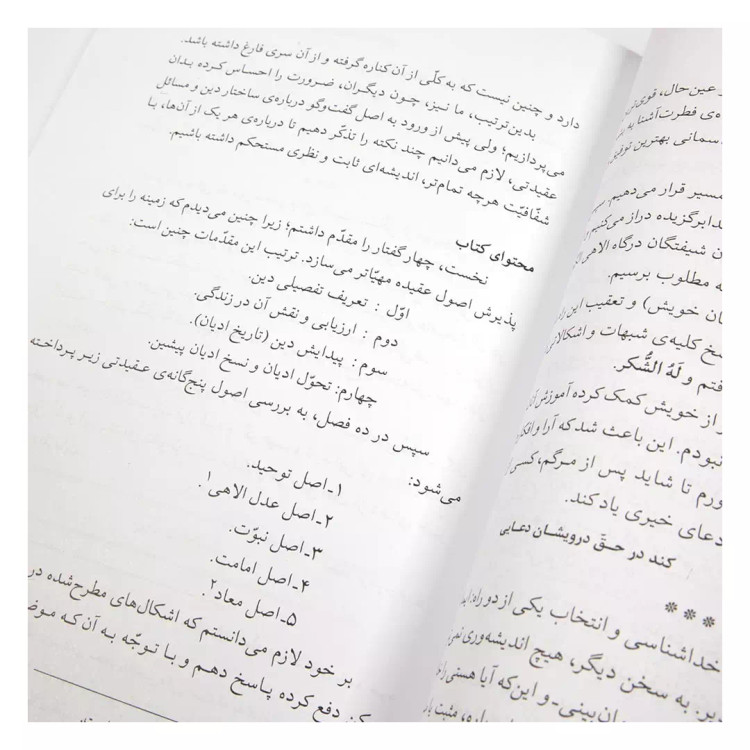 دارد و چنین نیست که به کلّی از آن کناره گرفته و از آن سری فارغ داشته باشد.
بدین‌ترتیب، ما نیز، چون دیگران، ضرورت را احساس کرده بدان
می‌پردازیم؛ ولی پیش از ورود به اصل گفت‌وگو درباره‌ی ساختار دین و مسائل
عقیدتی، لازم می‌دانیم چند نکته را تذکّر دهیم تا درباره‌ی هر یک از آن‌ها، با
شفّافیّت هرچه تمام‌تر، اندیشه‌ای ثابت و نظری مستحکم داشته باشیم.
محتوای کتاب
نخست، چهار گفتار را مقدّم داشتم؛ زیرا چنین می‌دیدم که زمینه را برای
پذیرش اصول عقیده مهیّاتر می‌سازد. ترتیب این مقدّمات چنین است:
اوّل : تعریف تفصیلی دین.
دوم : ارزیابی و نقش آن در زندگی.
سوم : پیدایش دین (تاریخ ادیان).
چهارم: تحوّل ادیان و نسخ ادیان پیشین.
سپس در ده فصل، به بررسی اصول پنج‌گانه‌ی عقیدتی زیر پرداخته
می‌شود:
۱ـ اصل توحید.
۲ـ اصل عدل الاهی۱.
۳ـ اصل نبوّت.
۴ـ اصل امامت.
۵ـ اصل معاد۲.
بر خود لازم می‌دانستم که اشکال‌های مطرح‌شده در
دفع کرده پاسخ دهم و با توجّه به آن که
عین حال،
فطرت آشنا به
سمانی بهترین توفیق
مسیر قرار می‌دهیم.
برگزیده دراز می‌کنیم
شیفتگان درگاه الاهی
مطلوب برسیم.
خویش) و تعقیب این
کلیه‌ی شبهات و اشکالاتی
و لَهُ الشُّکر.
از خویش کمک کرده آموزش
نبودم. این باعث شد که آرا و
تا شاید پس از مرگم، کسی
دعای خیری یاد کند.
کند در حقّ درویشان دعایی
***
خداشناسی و انتخاب یکی از دو راه
به سخن دیگر، هیچ اندیشه‌وری
بینی - و این‌که آیا هستی را
مثبت